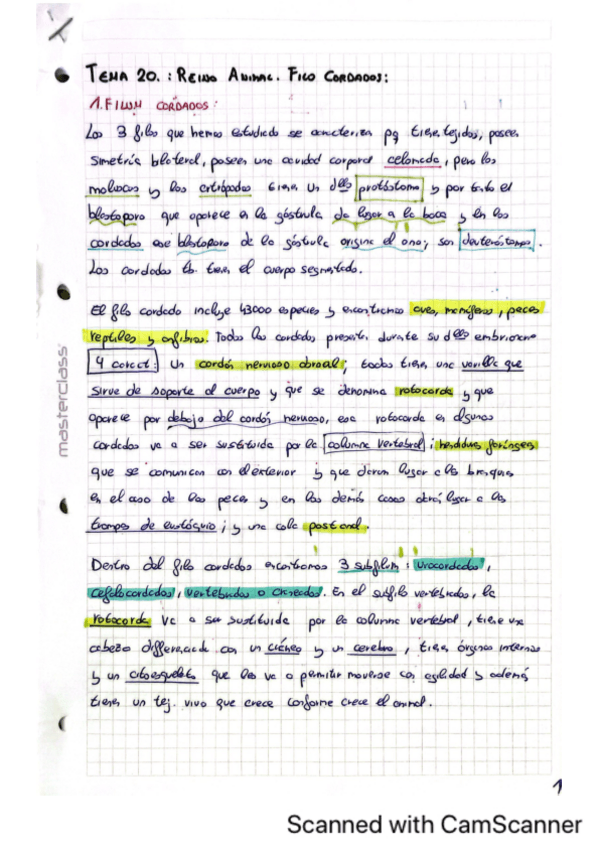 TEMA 20. : REINO ANIMAL. FILO CORDADOS:
1. FILUM CORDADOS:
Los 3 filos que hemos estudiado se caracterizan pq tienen tejidos, poseen
simetría bilateral, poseen una cavidad corporal celomada, pero los
moluscos y los artrópodos tienen un dllo protóstomo y por tanto el
blastoporo que aparece en la gástrula da lugar a la boca y en los
cordados ese blastoporo de la gástrula origina el ano; son deuteróstomos.
Los cordados tb tienen el cuerpo segmentado.
El filo cordado incluye 43000 especies y encontramos aves, mamíferos, peces
reptiles y anfibios. Todos los cordados presentan durante su dllo embrionario
4 caract: un cordón nervioso dorsal; todos tienen una varilla que
sirve de soporte al cuerpo y que se denomina notocorda y que
aparece por debajo del cordón nervioso, esa notocorda en algunos
cordados va a ser sustituida por la columna vertebral; hendiduras faríngeas
que se comunican con el exterior y que darán lugar a las branquias
en el caso de los peces y en los demás casos dará lugar a las
trompas de eustaquio; y una cola postanal.
Dentro del filo cordados encontramos 3 subfilum: urocordados,
cefalocordados, vertebrados o craneados. En el subfilo vertebrados, la
notocorda va a ser sustituida por la columna vertebral, tiene una
cabeza diferenciada con un cráneo y un cerebro, tienen órganos internos
y un citoesqueleto que les va a permitir moverse con agilidad y además
tienen un tej. vivo que crece conforme crece el animal.
masterclass
1
Scanned with CamScanner